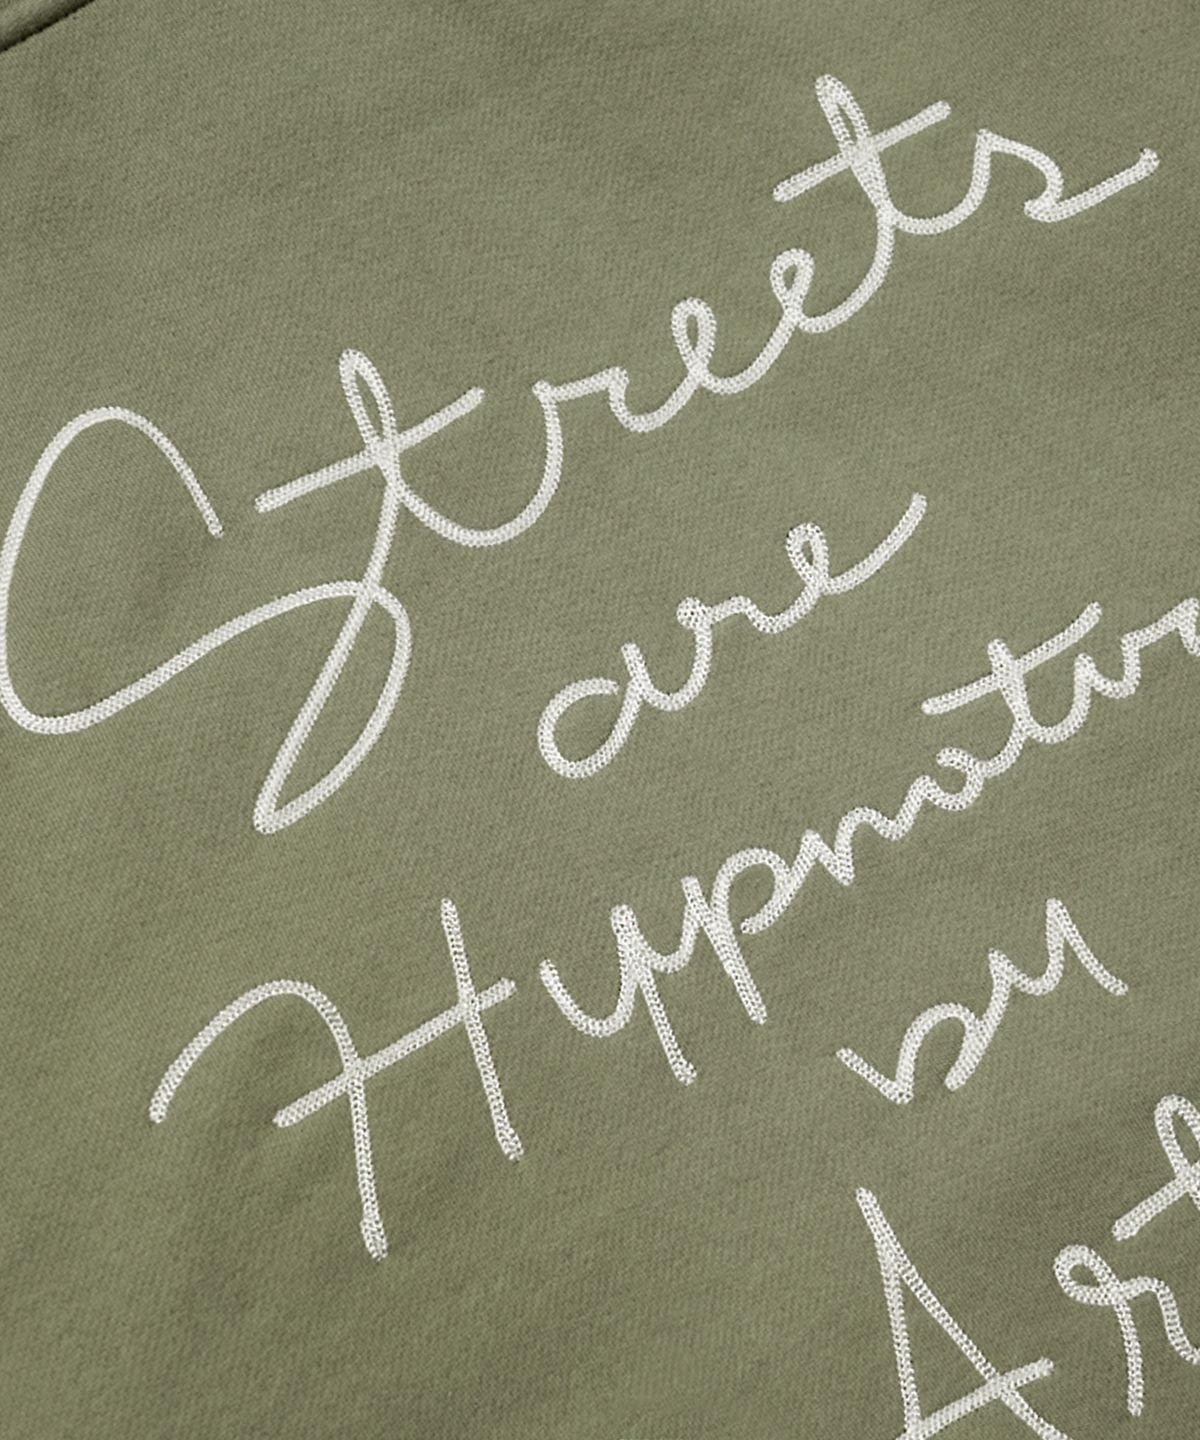 Streets
are
Hypnoti
by
Art